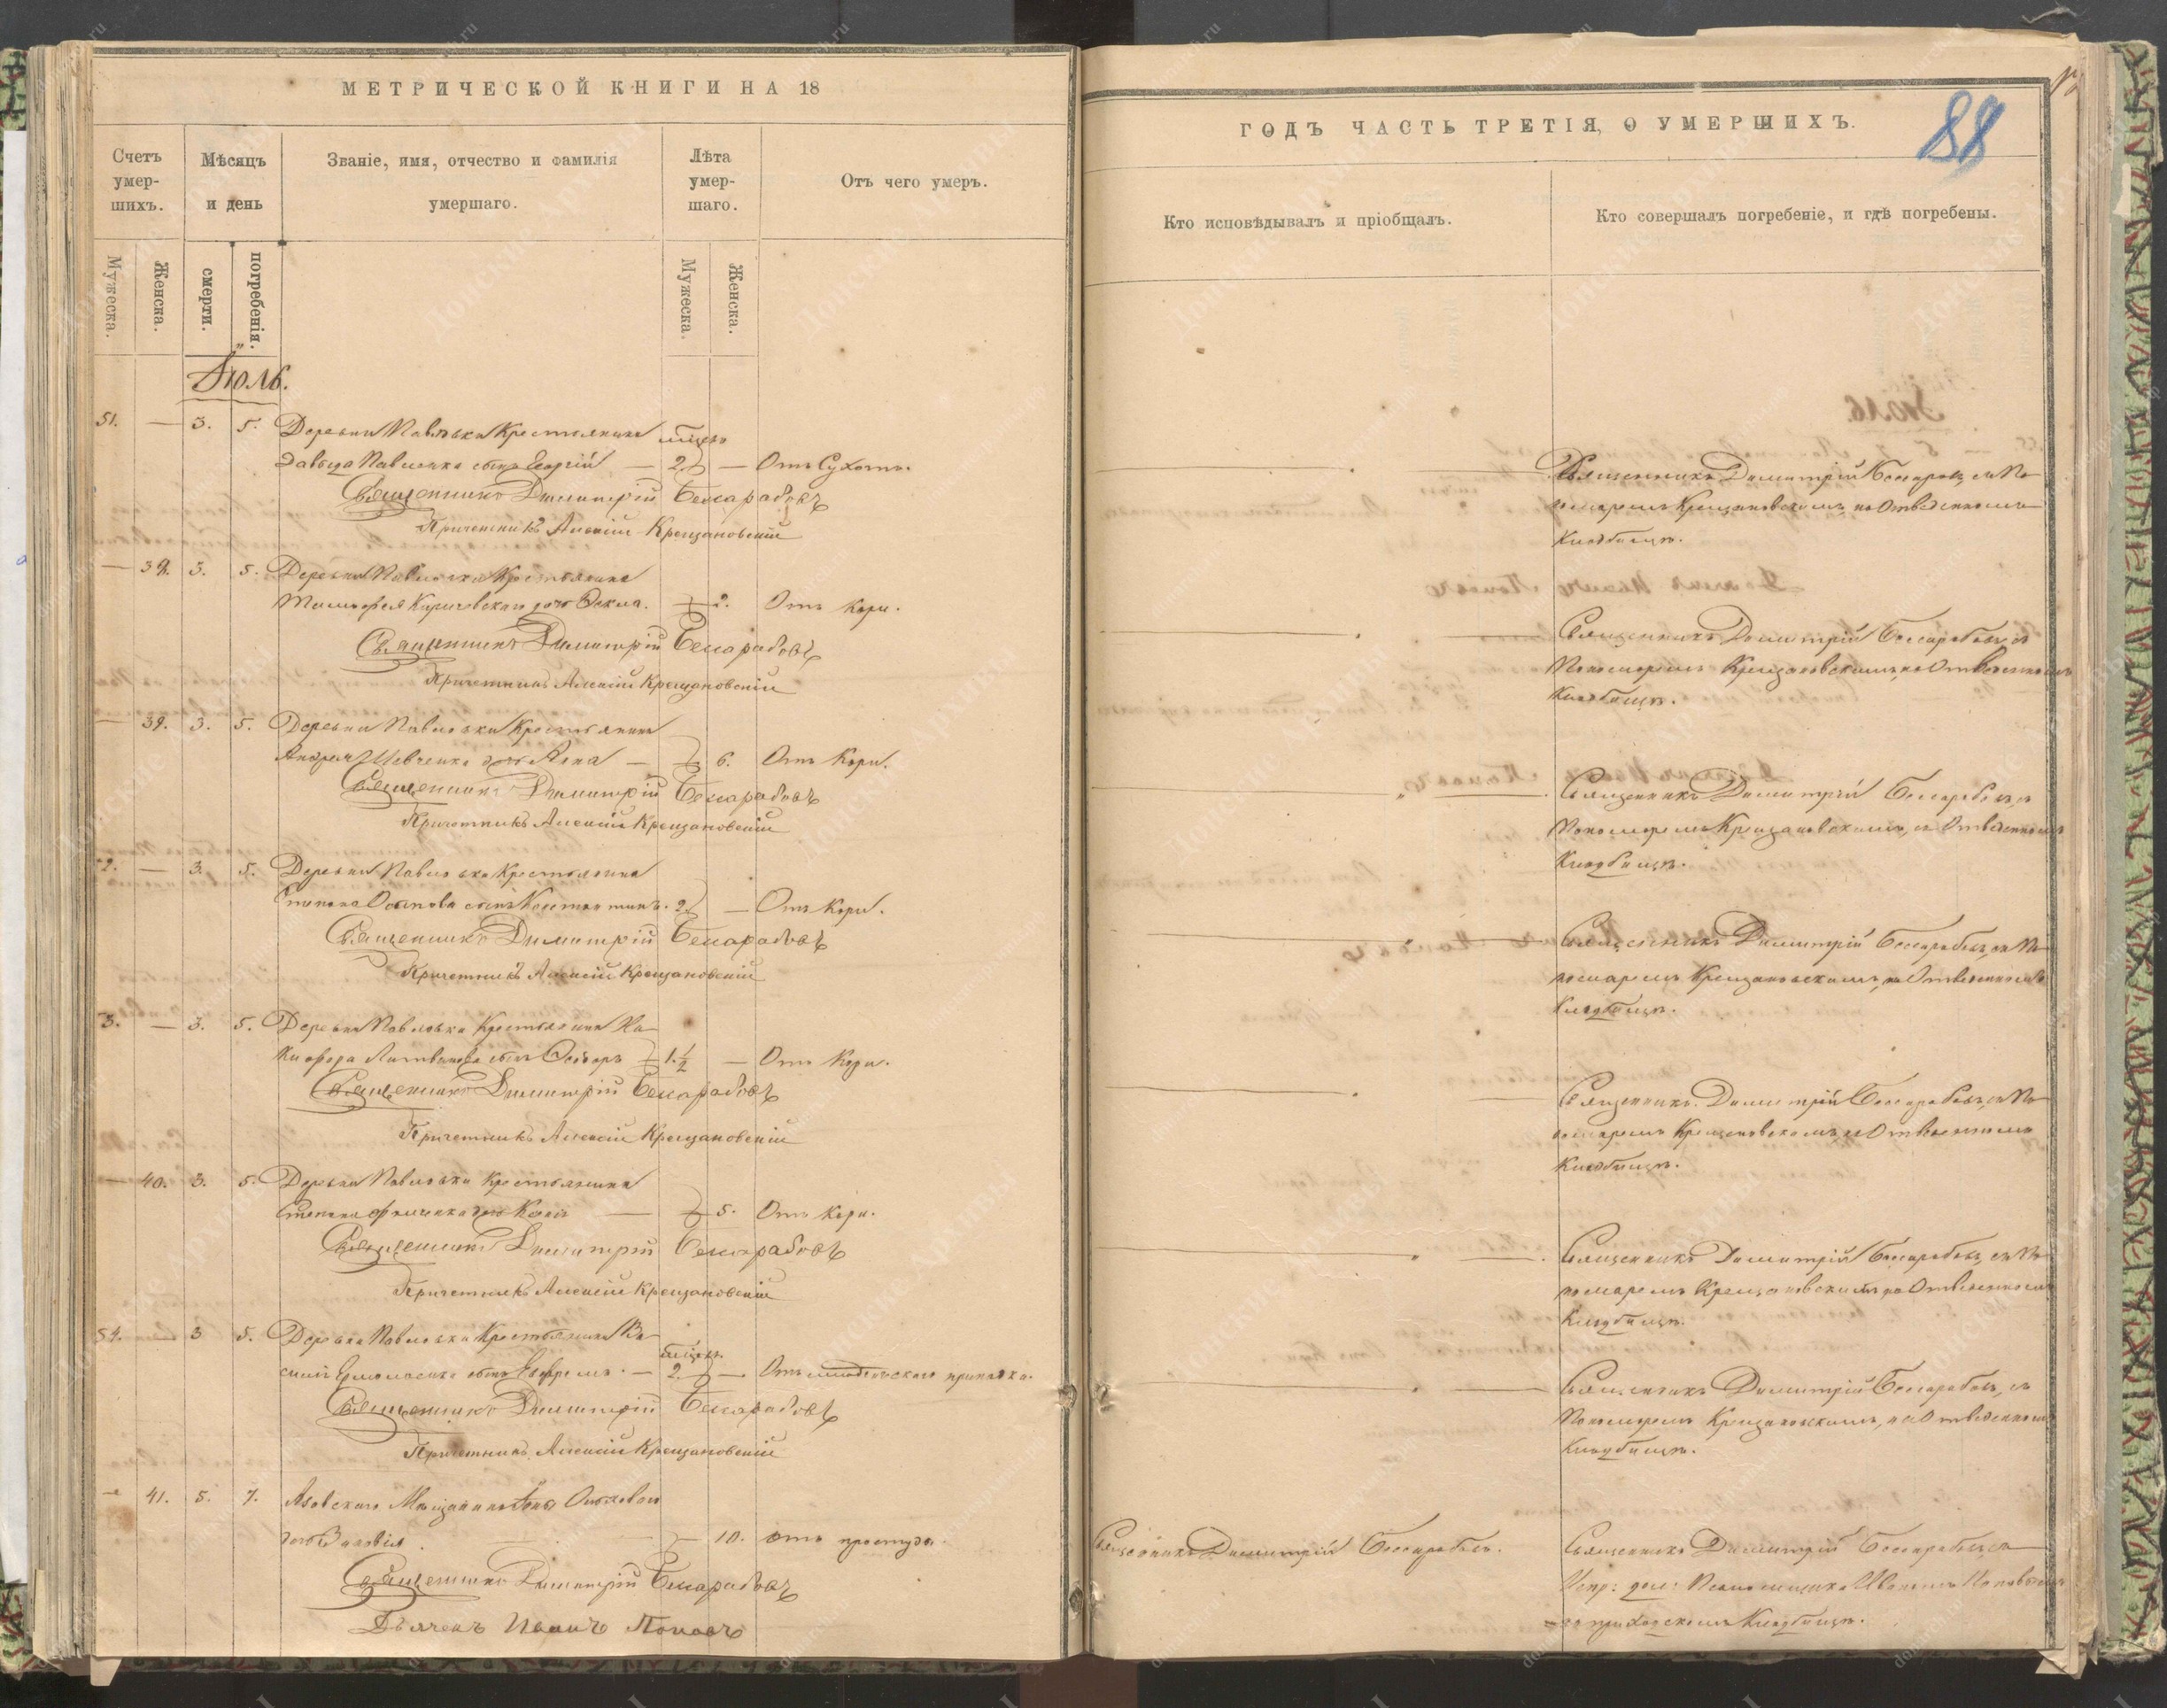 МЕТРИЧЕСКОЙ КНИГИ НА 18
Счетъ умер-шихъ.
Мѣсяцъ и день
Званіе, имя, отчество и фамилія умершаго.
Лѣта умер-шаго.
Отъ чего умеръ.
Мужеска.
Женска.
смерти.
погребенія.
Мужеска.
Женска.
Іюль.
51. — 3. 5. Деревни Павловки Крестьянина
Давыда Павленка сынъ Георгій — 2. — Отъ Сухоты.
Священникъ Димитрій Бессарабовъ
Причетникъ Алексій Крещановскій
— 38. 3. 5. Деревни Павловки Крестьянина
Тимофея дочь Фекла. 2. Отъ Кори.
Священникъ Димитрій Бессарабовъ
Причетникъ Алексій Крещановскій
— 39. 3. 5. Деревни Павловки Крестьянина
Андрея Шевченка дочь Анна — 6. Отъ Кори.
Священникъ Димитрій Бессарабовъ
Причетникъ Алексій Крещановскій
2. — 3. 5. Деревни Павловки Крестьянина
Степана Осипова сынъ Константинъ. 2. — Отъ Кори.
Священникъ Димитрій Бессарабовъ
Причетникъ Алексій Крещановскій
3. — 3. 5. Деревни Павловки Крестьянина Ни-
кифора Литвинова сынъ Ѳеодоръ 1 1/2 — Отъ Кори.
Священникъ Димитрій Бессарабовъ
Причетникъ Алексій Крещановскій
— 40. 3. 5. Деревни Павловки Крестьянина
Степана дочь — 5. Отъ Кори.
Священникъ Димитрій Бессарабовъ
Причетникъ Алексій Крещановскій
54. — 3 5. Деревни Павловки Крестьянина Ва-
силія Ермоленка сынъ Ефремъ. — 2. — Отъ младенческаго припадка.
Священникъ Димитрій Бессарабовъ
Причетникъ Алексій Крещановскій
— 41. 5. 7. Азовскаго Мѣщанина
дочь — 10. отъ простуды.
Священникъ Димитрій Бессарабовъ
Дьячекъ Иванъ Поповъ
ГОДЪ ЧАСТЬ ТРЕТІЯ, О УМЕРШИХЪ.
88
Кто исповѣдывалъ и пріобщалъ.
Кто совершалъ погребеніе, и гдѣ погребены.
Священникъ Димитрій Бессарабовъ съ По-
номаремъ Крещановскимъ, на Отведенномъ
Кладбищѣ.
Священникъ Димитрій Бессарабовъ, съ
Пономаремъ Крещановскимъ, на Отведенномъ
Кладбищѣ.
Священникъ Димитрій Бессарабовъ, съ
Пономаремъ Крещановскимъ, на Отведенномъ
Кладбищѣ.
Священникъ Димитрій Бессарабовъ, съ По-
номаремъ Крещановскимъ, на Отведенномъ
Кладбищѣ.
Священникъ Димитрій Бессарабовъ, съ По-
номаремъ Крещановскимъ, на Отведенномъ
Кладбищѣ.
Священникъ Димитрій Бессарабовъ, съ По-
номаремъ Крещановскимъ на Отведенномъ
Кладбищѣ.
Священникъ Димитрій Бессарабовъ, съ
Пономаремъ Крещановскимъ, на Отведенномъ
Кладбищѣ.
Священникъ Димитрій Бессарабовъ.
Священникъ Димитрій Бессарабовъ, съ
Испр: дол: Псаломщика Иваномъ Поповымъ
на приходскомъ Кладбищѣ.